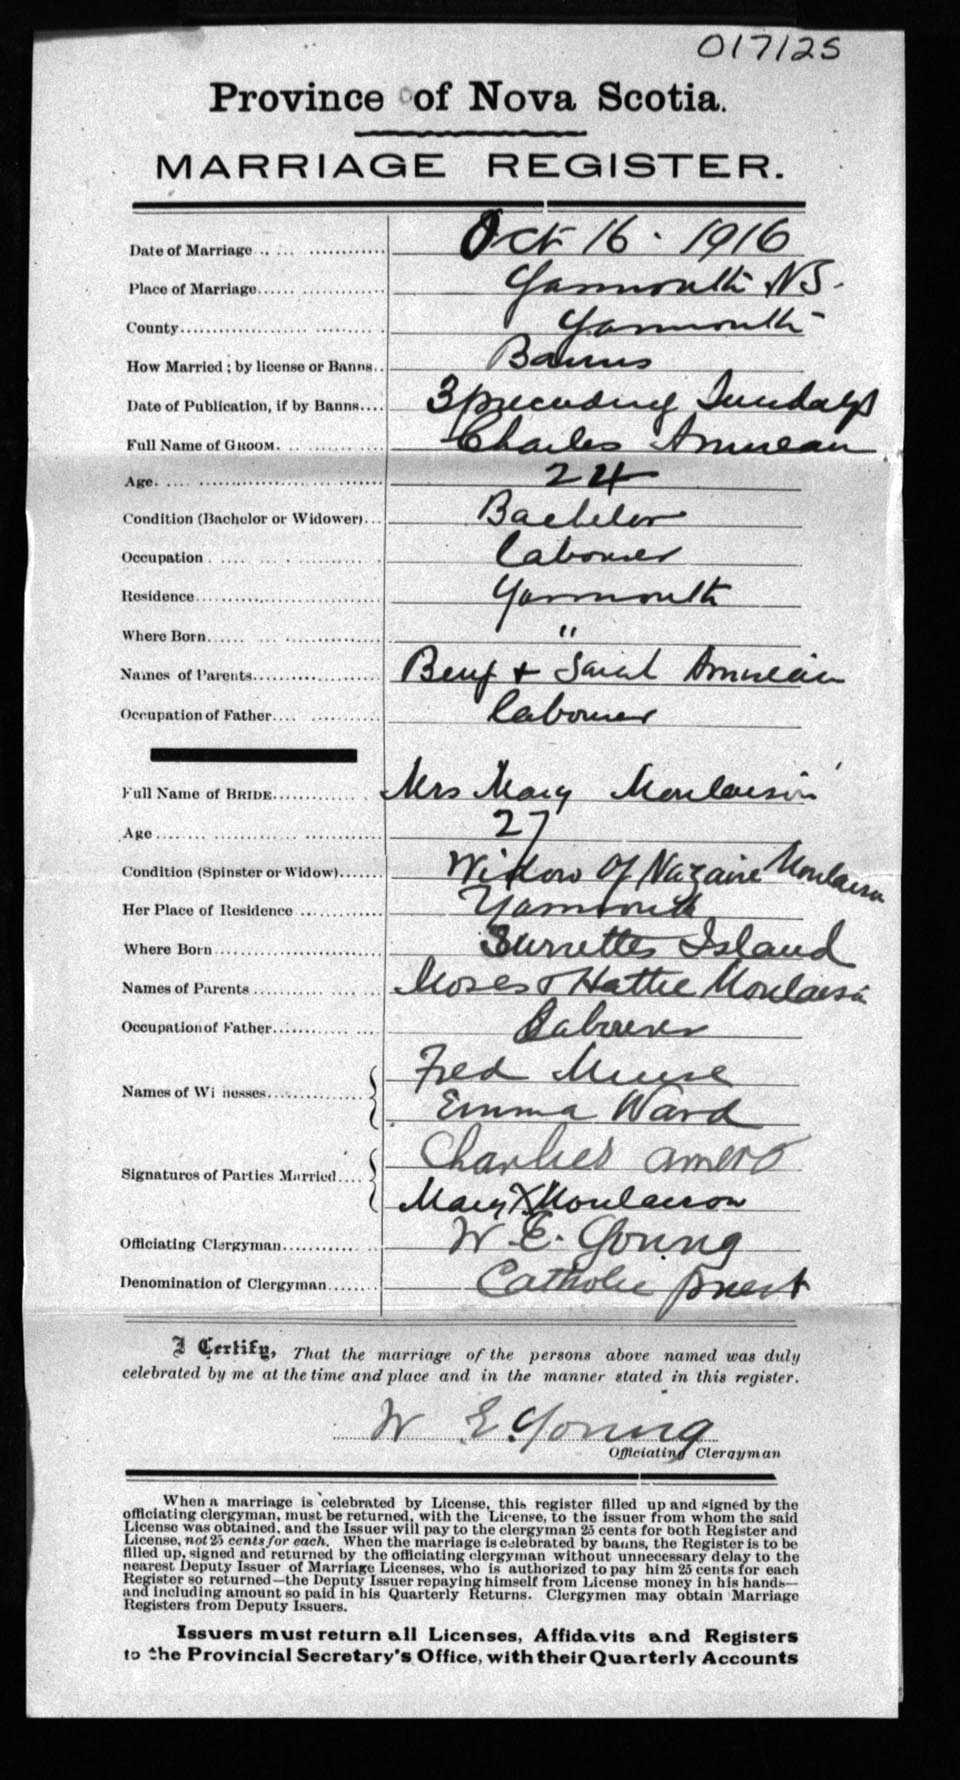 017125
Province of Nova Scotia.
MARRIAGE REGISTER.
Date of Marriage Oct 16 - 1916
Place of Marriage Yarmouth N.S.
County Yarmouth
How Married; by license or Banns Banns
Date of Publication, if by Banns 3 preceding Sundays
Full Name of GROOM. Charles Amireau
Age. 24
Condition (Bachelor or Widower) Bachelor
Occupation Labourer
Residence Yarmouth
Where Born "
Names of Parents Benj + Sarah Amireau
Occupation of Father Labourer
Full Name of BRIDE Mrs Mary Moulaison
Age 27
Condition (Spinster or Widow) Widow of Nazaire Moulaison
Her Place of Residence Yarmouth
Where Born Surrettes Island
Names of Parents Moses & Hattie Moulaison
Occupation of Father Labourer
Names of Witnesses Fred Muise
Emma Ward
Signatures of Parties Married Charlies amero
Mary X Moulaison
Officiating Clergyman W. E. Young
Denomination of Clergyman Catholic priest
I Certify, That the marriage of the persons above named was duly
celebrated by me at the time and place and in the manner stated in this register.
W E. Young
Officiating Clergyman
When a marriage is celebrated by License, this register filled up and signed by the
officiating clergyman, must be returned, with the License, to the issuer from whom the said
License was obtained, and the Issuer will pay to the clergyman 25 cents for both Register and
License, not 25 cents for each. When the marriage is celebrated by banns, the Register is to be
filled up, signed and returned by the officiating clergyman without unnecessary delay to the
nearest Deputy Issuer of Marriage Licenses, who is authorized to pay him 25 cents for each
Register so returned—the Deputy Issuer repaying himself from License money in his hands—
and including amount so paid in his Quarterly Returns. Clergymen may obtain Marriage
Registers from Deputy Issuers.
Issuers must return all Licenses, Affidavits and Registers
to the Provincial Secretary's Office, with their Quarterly Accounts